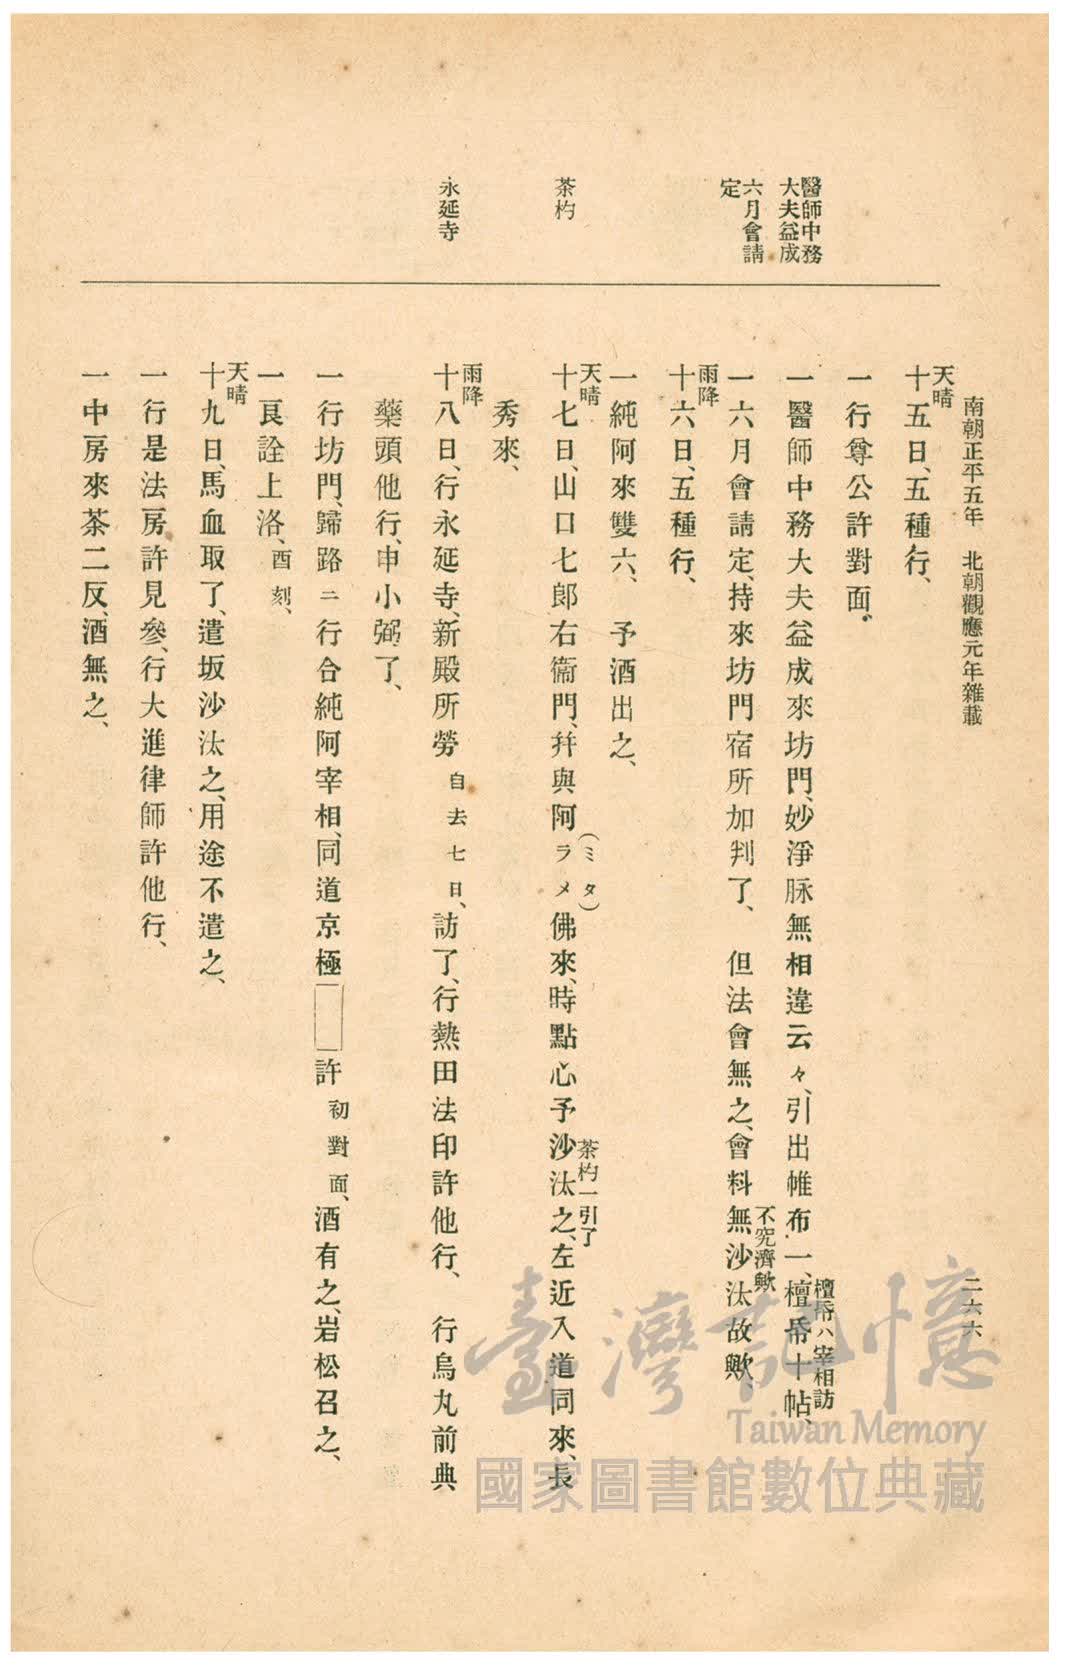 南朝正平五年　北朝觀應元年雜載
二六六
醫師中務
大夫益成
六月會請
定
茶杓
永延寺
天晴
十五日、五種行、
一行尊公許對面、
一醫師中務大夫益成來坊門、妙淨脉無相違云々、引出帷布一、檀帋十帖、
檀帋ハ宰相訪
一六月會請定、持來坊門宿所加判了、　但法會無之、會料無沙汰故歟、
不究濟歟
雨降
十六日、五種行、
一純阿來雙六、　予酒出之、
天晴
十七日、山口七郎右衞門、幷與阿ラメ佛來、時點心予沙汰之、左近入道同來、長
（ミタ）
茶杓一引了
秀來、
雨降
十八日、行永延寺、新殿所勞自去七日、訪了、行熱田法印許他行、　行烏丸前典
藥頭他行、申小弼了、
一行坊門、歸路ニ行合純阿宰相、同道京極　　許初對面、酒有之、岩松召之、
一良詮上洛、酉刻、
天晴
十九日、馬血取了、遣坂沙汰之、用途不遣之、
一行是法房許見參、行大進律師許他行、
一中房來茶二反、酒無之、
臺灣記憶
Taiwan Memory
國家圖書館數位典藏